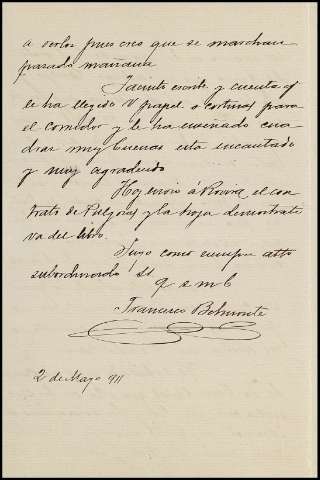 a verlos pues creo que se marchan
pasado mañana
Jacinto escribe y cuenta q
le ha elegido V papel o cortinas para
el comedor y le ha enseñado cua
dros muy buenos esta encantado
y muy agradecido
Hoy envio á Rovira el con
trato de y la hoja demostrati
va del libro.
Suyo como siempre afto
subordinado SS
q s m b
Francisco Belmonte
2 de Mayo 911